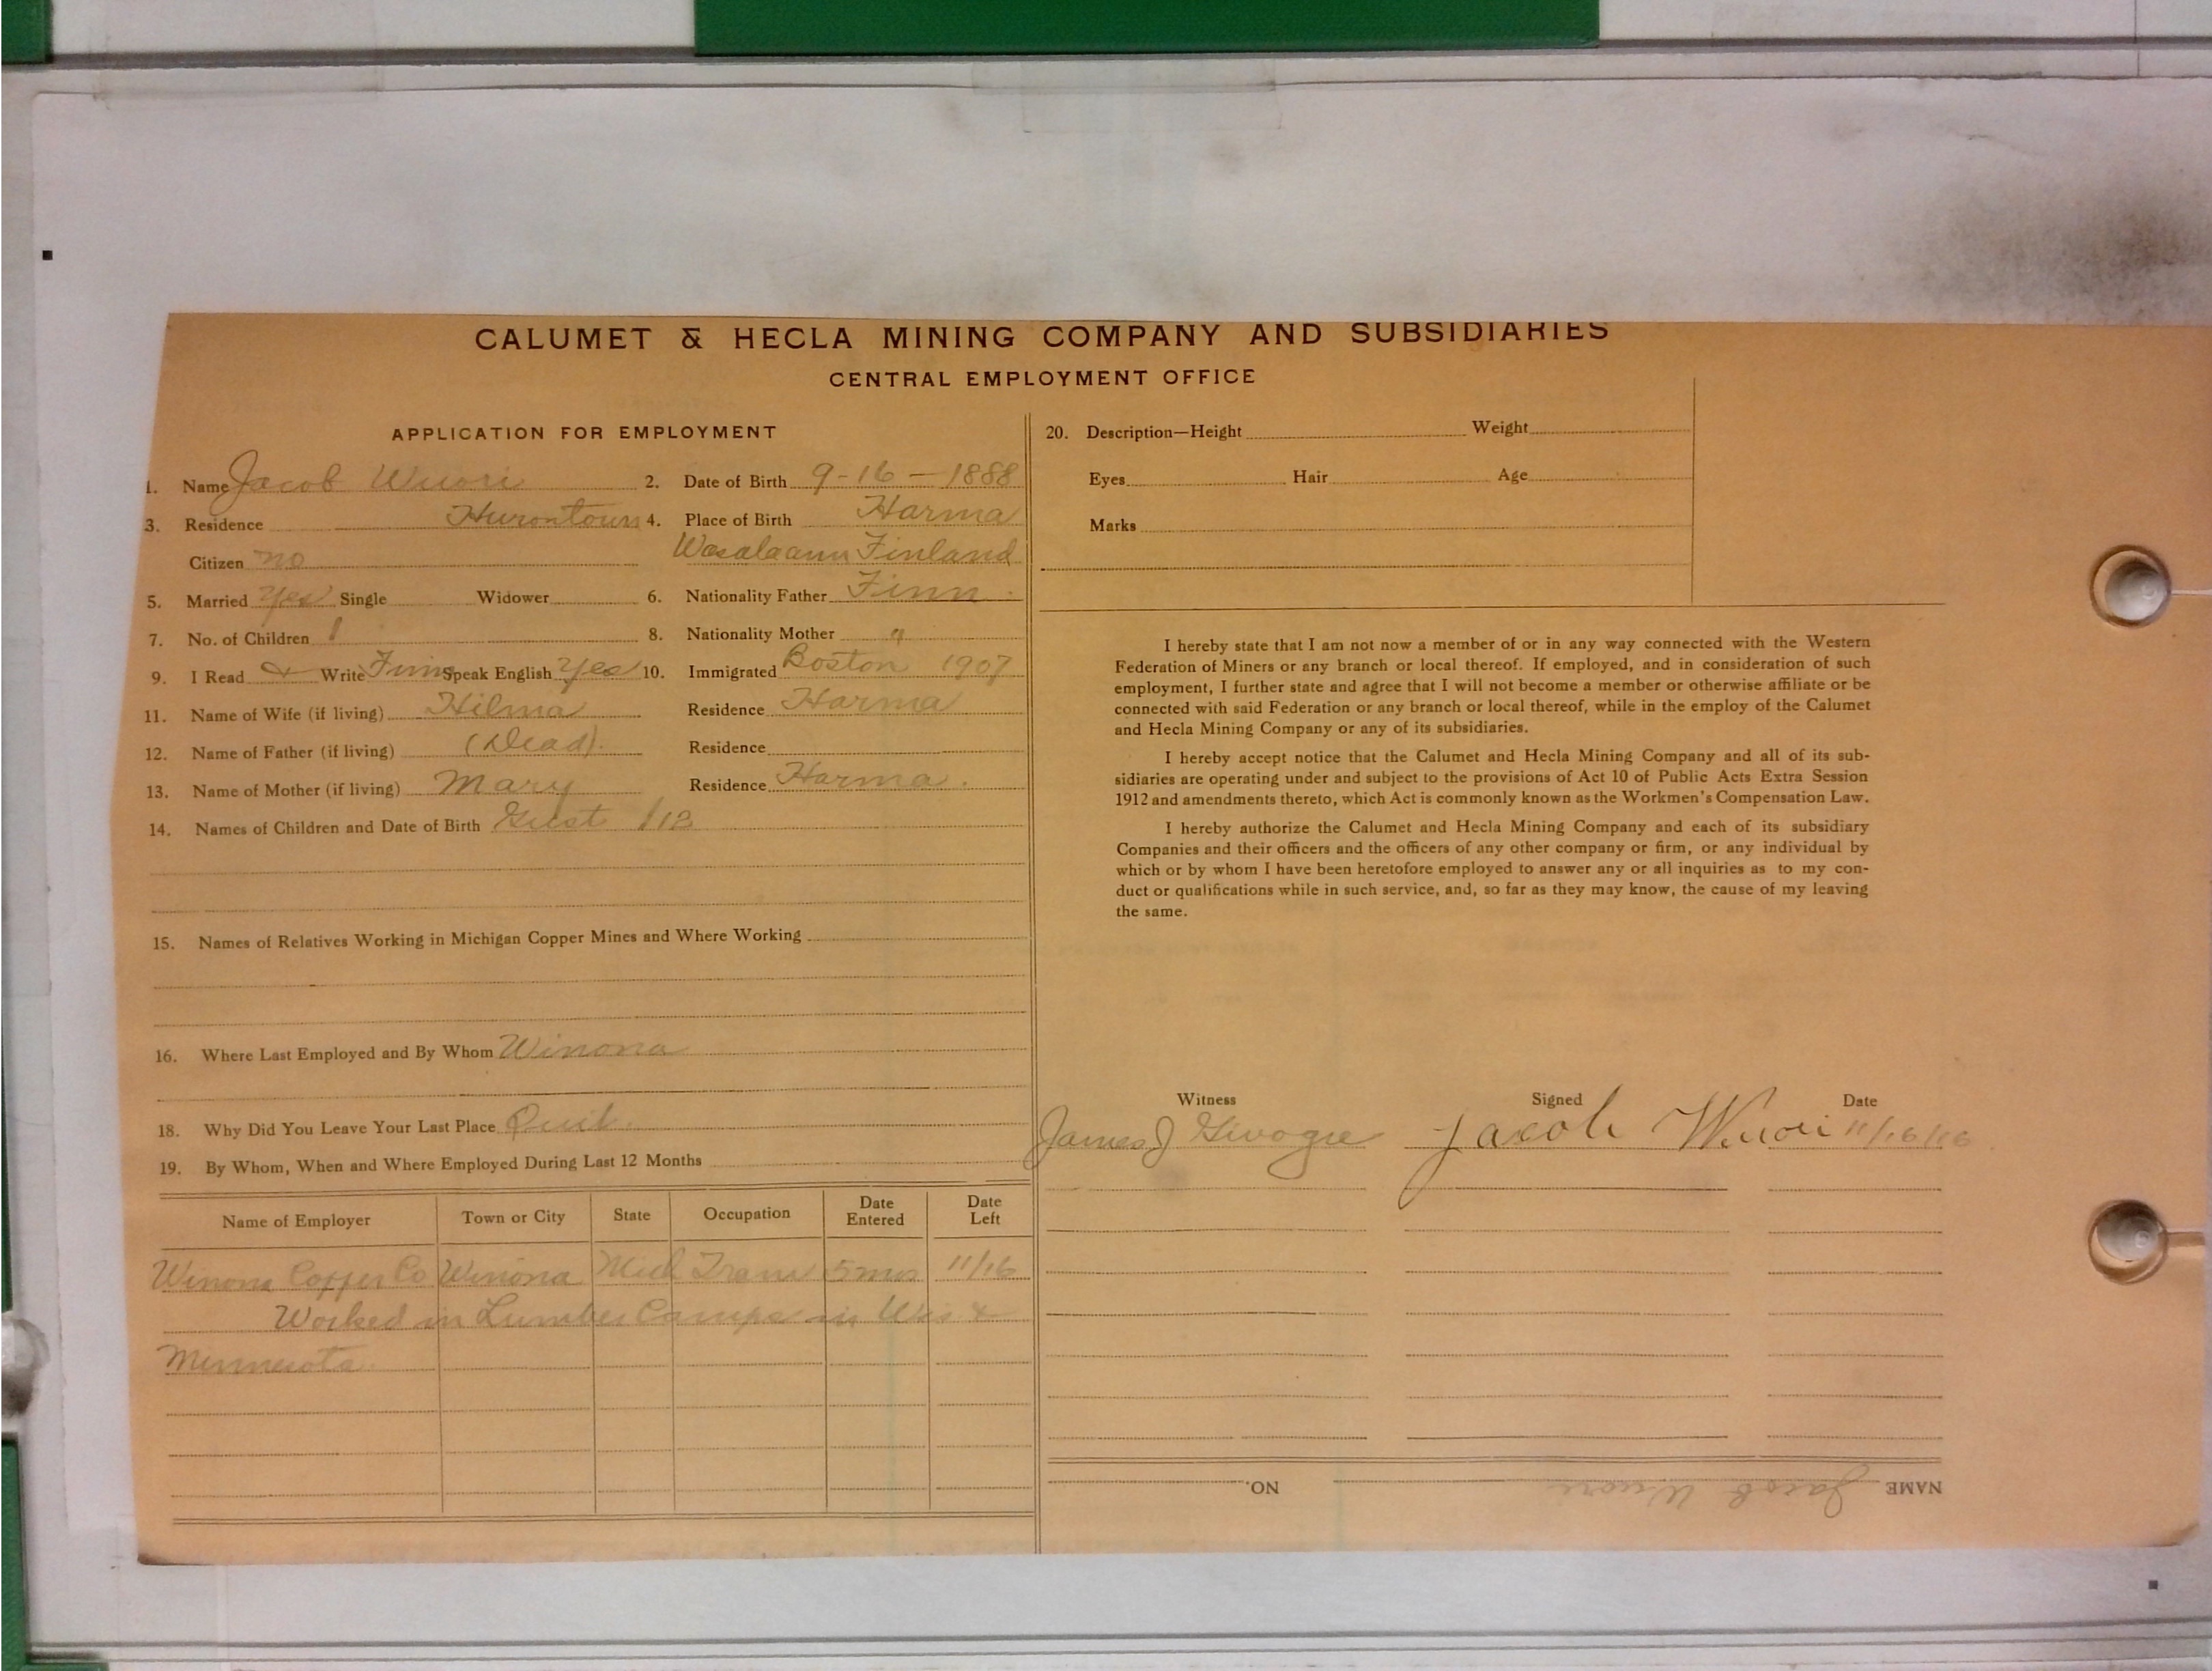 CALUMET & HECLA MINING COMPANY AND SUBSIDIARIES
CENTRAL EMPLOYMENT OFFICE
APPLICATION FOR EMPLOYMENT
1. Name Jacob Wuori 2. Date of Birth 9-16-1888
3. Residence Hurontown 4. Place of Birth Harma
Citizen no Wasalaann Finland
5. Married Yes Single Widower 6. Nationality Father Finn.
7. No. of Children 1 8. Nationality Mother "
9. I Read & Write Finn Speak English Yes 10. Immigrated Boston 1907
11. Name of Wife (if living) Hilma Residence Harma
12. Name of Father (if living) (Dead). Residence
13. Name of Mother (if living) Mary Residence Harma.
14. Names of Children and Date of Birth Gust
15. Names of Relatives Working in Michigan Copper Mines and Where Working
16. Where Last Employed and By Whom Winona
18. Why Did You Leave Your Last Place Quit.
19. By Whom, When and Where Employed During Last 12 Months
Name of Employer Town or City State Occupation Date Entered Date Left
Winona Copper Co Winona Mich Tram 5 mos 11/16
Worked in Lumber Camps in Wis &
Minnesota
20. Description—Height Weight
Eyes Hair Age
Marks
I hereby state that I am not now a member of or in any way connected with the Western
Federation of Miners or any branch or local thereof. If employed, and in consideration of such
employment, I further state and agree that I will not become a member or otherwise affiliate or be
connected with said Federation or any branch or local thereof, while in the employ of the Calumet
and Hecla Mining Company or any of its subsidiaries.
I hereby accept notice that the Calumet and Hecla Mining Company and all of its sub-
sidiaries are operating under and subject to the provisions of Act 10 of Public Acts Extra Session
1912 and amendments thereto, which Act is commonly known as the Workmen's Compensation Law.
I hereby authorize the Calumet and Hecla Mining Company and each of its subsidiary
Companies and their officers and the officers of any other company or firm, or any individual by
which or by whom I have been heretofore employed to answer any or all inquiries as to my con-
duct or qualifications while in such service, and, so far as they may know, the cause of my leaving
the same.
Witness Signed Date
James J Jacob Wuori 11/16/16
NAME Jacob Wuori NO.